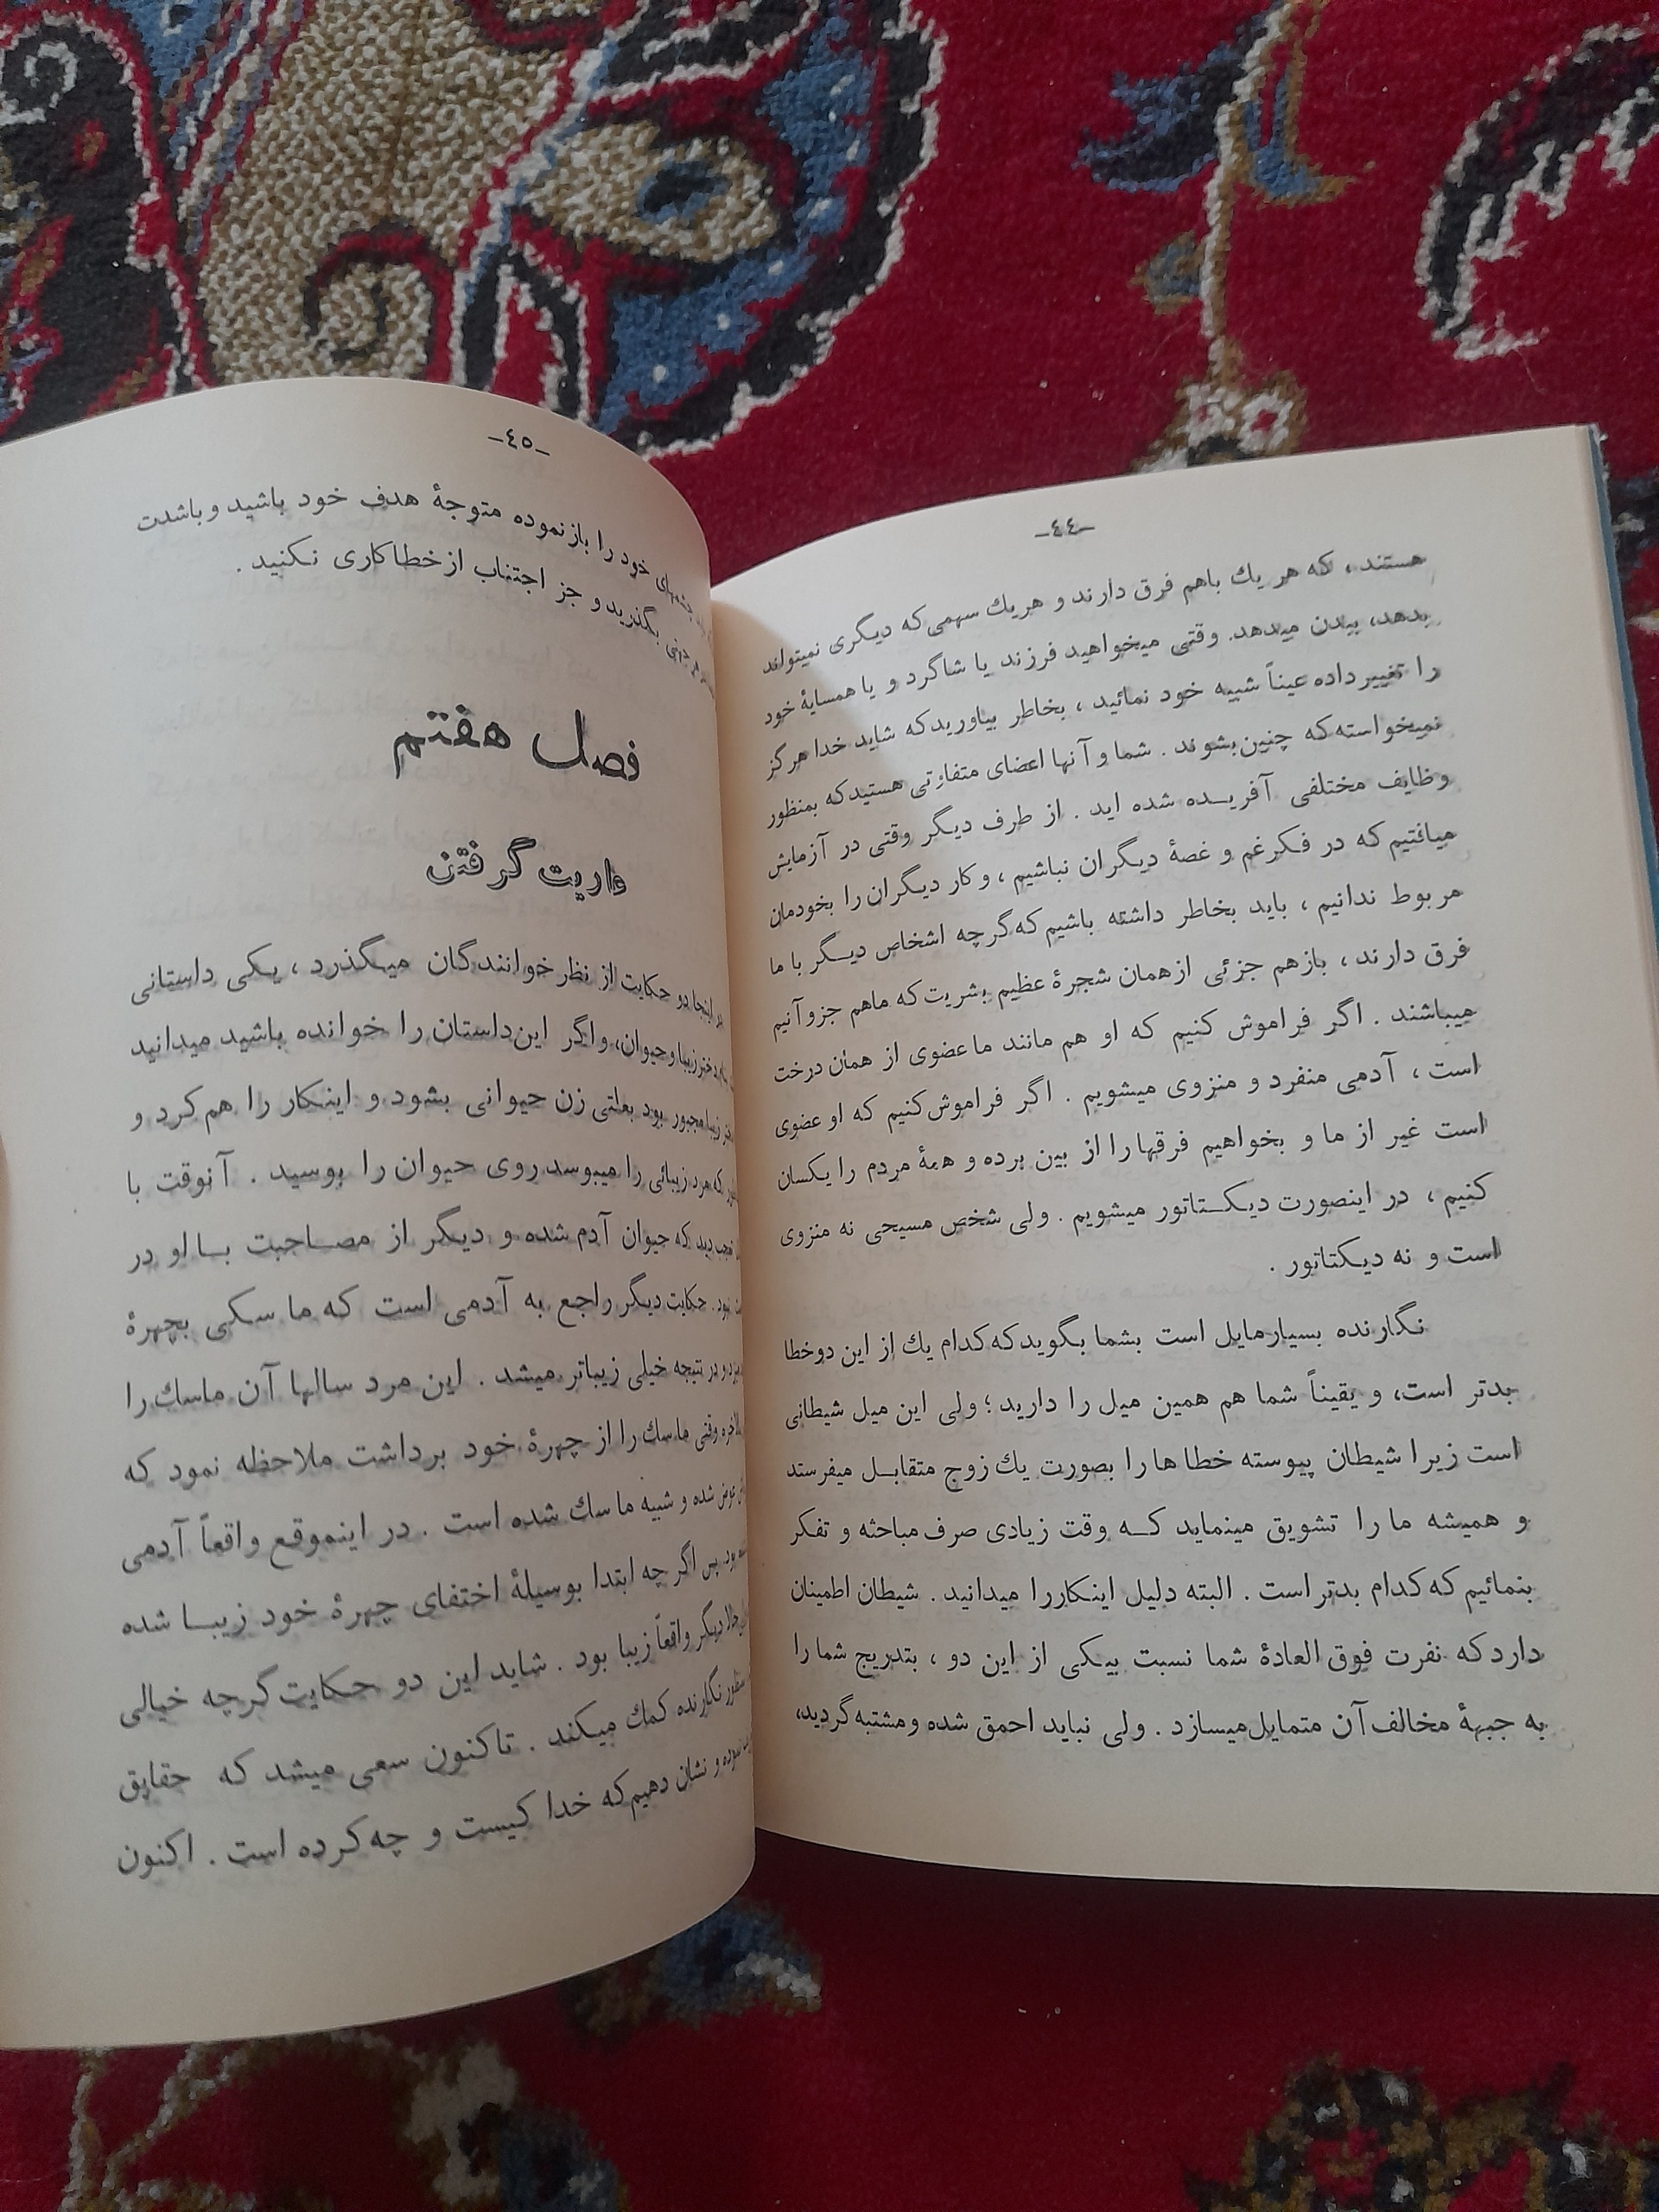 -٤٤-
هستند ، که هر یك باهم فرق دارند و هریك سهمی که دیگری نمیتواند
بدهد، ببدن میدهد. وقتی میخواهید فرزند یا شاگرد و یا همسایۀ خود
را تغییر داده عیناً شبیه خود نمائید ، بخاطر بیاورید که شاید خدا هرگز
نمیخواسته که چنین بشوند . شما و آنها اعضای متفاوتی هستید که بمنظور
وظایف مختلفی آفریده شده اید . از طرف دیگر وقتی در آزمایش
میافتیم که در فکر غم و غصۀ دیگران نباشیم ، و کار دیگران را بخودمان
مربوط ندانیم ، باید بخاطر داشته باشیم که گرچه اشخاص دیگر با ما
فرق دارند ، بازهم جزئی از همان شجرۀ عظیم بشریت که ماهم جزو آنیم
میباشند . اگر فراموش کنیم که او هم مانند ما عضوی از همان درخت
است ، آدمی منفرد و منزوی میشویم . اگر فراموش کنیم که او عضوی
است غیر از ما و بخواهیم فرقها را از بین برده و همۀ مردم را یکسان
کنیم ، در اینصورت دیکتاتور میشویم . ولی شخص مسیحی نه منزوی
است و نه دیکتاتور .
نگارنده بسیار مایل است بشما بگوید که کدام یك از این دو خطا
بدتر است، و یقیناً شما هم همین میل را دارید ؛ ولی این میل شیطانی
است زیرا شیطان پیوسته خطا ها را بصورت یك زوج متقابل میفرستد
و همیشه ما را تشویق مینماید که وقت زیادی صرف مباحثه و تفکر
بنمائیم که کدام بدتر است . البته دلیل اینکار را میدانید . شیطان اطمینان
دارد که نفرت فوق العادۀ شما نسبت بیکی از این دو ، بتدریج شما را
به جبهۀ مخالف آن متمایل میسازد . ولی نباید احمق شده و مشتبه گردید،
-٤٥-
چشمهای خود را باز نموده متوجۀ هدف خود باشید و باشدت
بگذرید و جز اجتناب از خطا کاری نکنید .
فصل هفتم
واریت گرفتن
در اینجا دو حکایت از نظر خوانندگان میگذرد ، یکی داستانی
دختر زیبا و حیوان، و اگر این داستان را خوانده باشید میدانید
زیبا مجبور بود بعلتی زن حیوانی بشود و اینکار را هم کرد و
که مرد زیبائی را میبوسد روی حیوان را بوسید . آنوقت با
تعجب دید که حیوان آدم شده و دیگر از مصاحبت با او در
نبود . حکایت دیگر راجع به آدمی است که ماسکی بچهرۀ
و در نتیجه خیلی زیباتر میشد . این مرد سالها آن ماسك را
وقتی ماسك را از چهرۀ خود برداشت ملاحظه نمود که
عوض شده و شبیه ماسك شده است . در اینموقع واقعاً آدمی
بود . پس اگر چه ابتدا بوسیلۀ اختفای چهرۀ خود زیبا شده
حالا دیگر واقعاً زیبا بود . شاید این دو حکایت گرچه خیالی
نگارنده کمك میکند . تاکنون سعی میشد که حقایق
نموده و نشان دهیم که خدا کیست و چه کرده است . اکنون